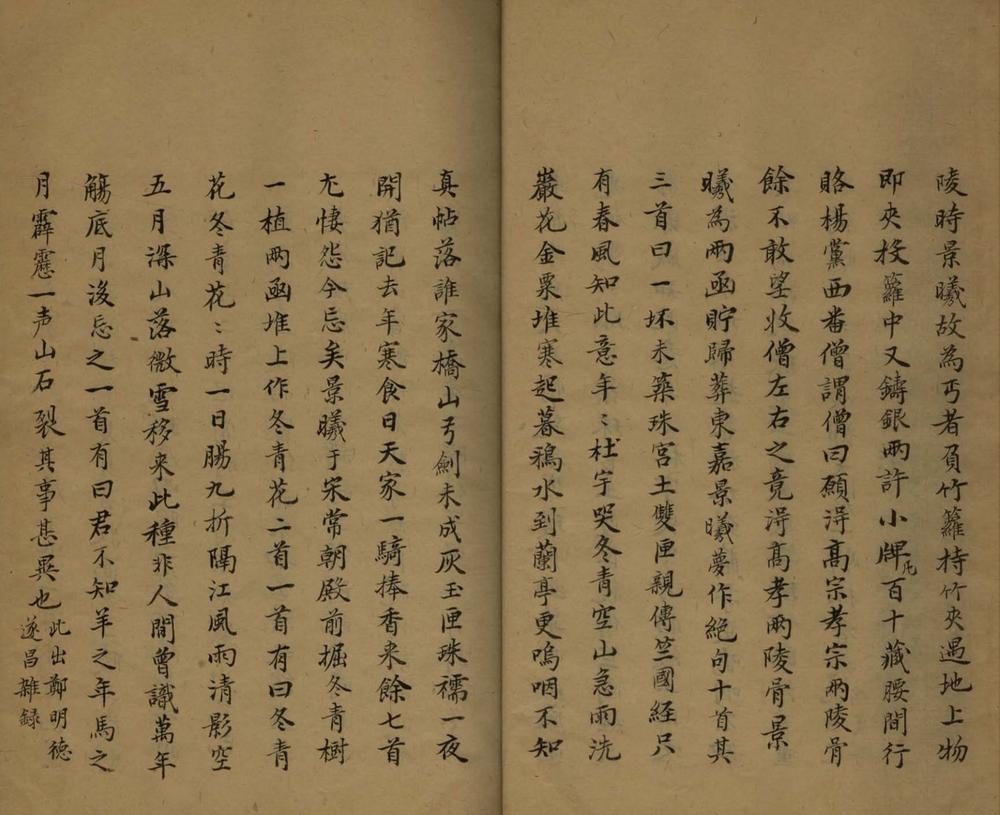 陵時景曦故為丐者負竹籮持竹夾遇地上物
即夾投籮中又鑄銀兩許小牌凡百十藏腰間行
賂楊黨西番僧謂僧曰願淂髙宗孝宗兩陵骨
餘不敢望收僧左右之竟淂髙孝兩陵骨景
曦為兩函貯歸葬東嘉景曦夢作絶句十首其
三首曰一坏未築珠宮土雙匣親傳竺國経只
有春風知此意年〻杜宇哭冬青空山急雨洗
巖花金粟堆寒起暮鴉水到蘭亭更嗚咽不知
真帖落誰家橋山弓劍未成灰玉匣珠襦一夜
開猶記去年寒食日天家一騎捧香来餘七首
尢悽怨今忘矣景曦于宋常朝殿前掘冬青樹
一植兩函堆上作冬青花二首一首有曰冬青
花冬青花〻時一日腸九折隔江風雨清影空
五月深山落微雪移来此種非人間曽識萬年
觴底月後忘之一首有曰君不知羊之年馬之
月霹靂一声山石裂其事甚異也此出鄭明德
遂昌雜録